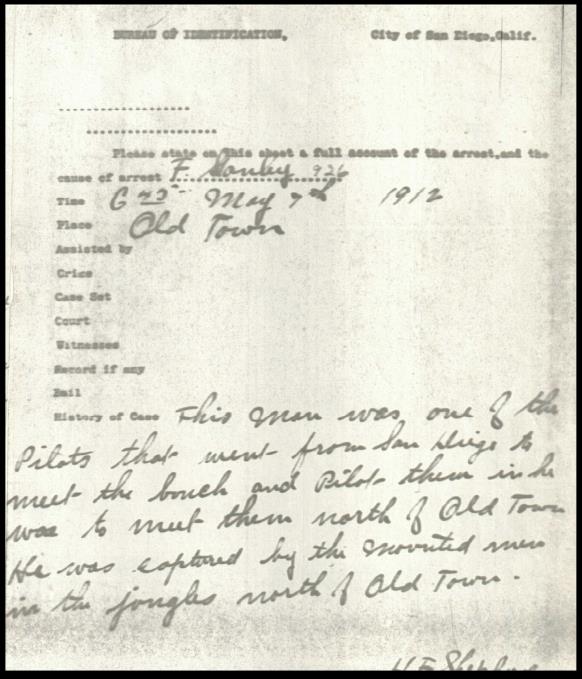 BUREAU OF IDENTIFICATION, City of San Diego, Calif.
Please state on this sheet a full account of the arrest, and the
cause of arrest F. 926
Time 6 45 May 7th 1912
Place Old Town
Assisted by
Crime
Case Set
Court
Witnesses
Record if any
Bail
History of Case This man was one of the
Pilots that went from San Diego to
meet the bouch and Pilot them in he
was to meet them north of Old Town
He was captured by the mounted men
in the jongles north of Old Town.
H F